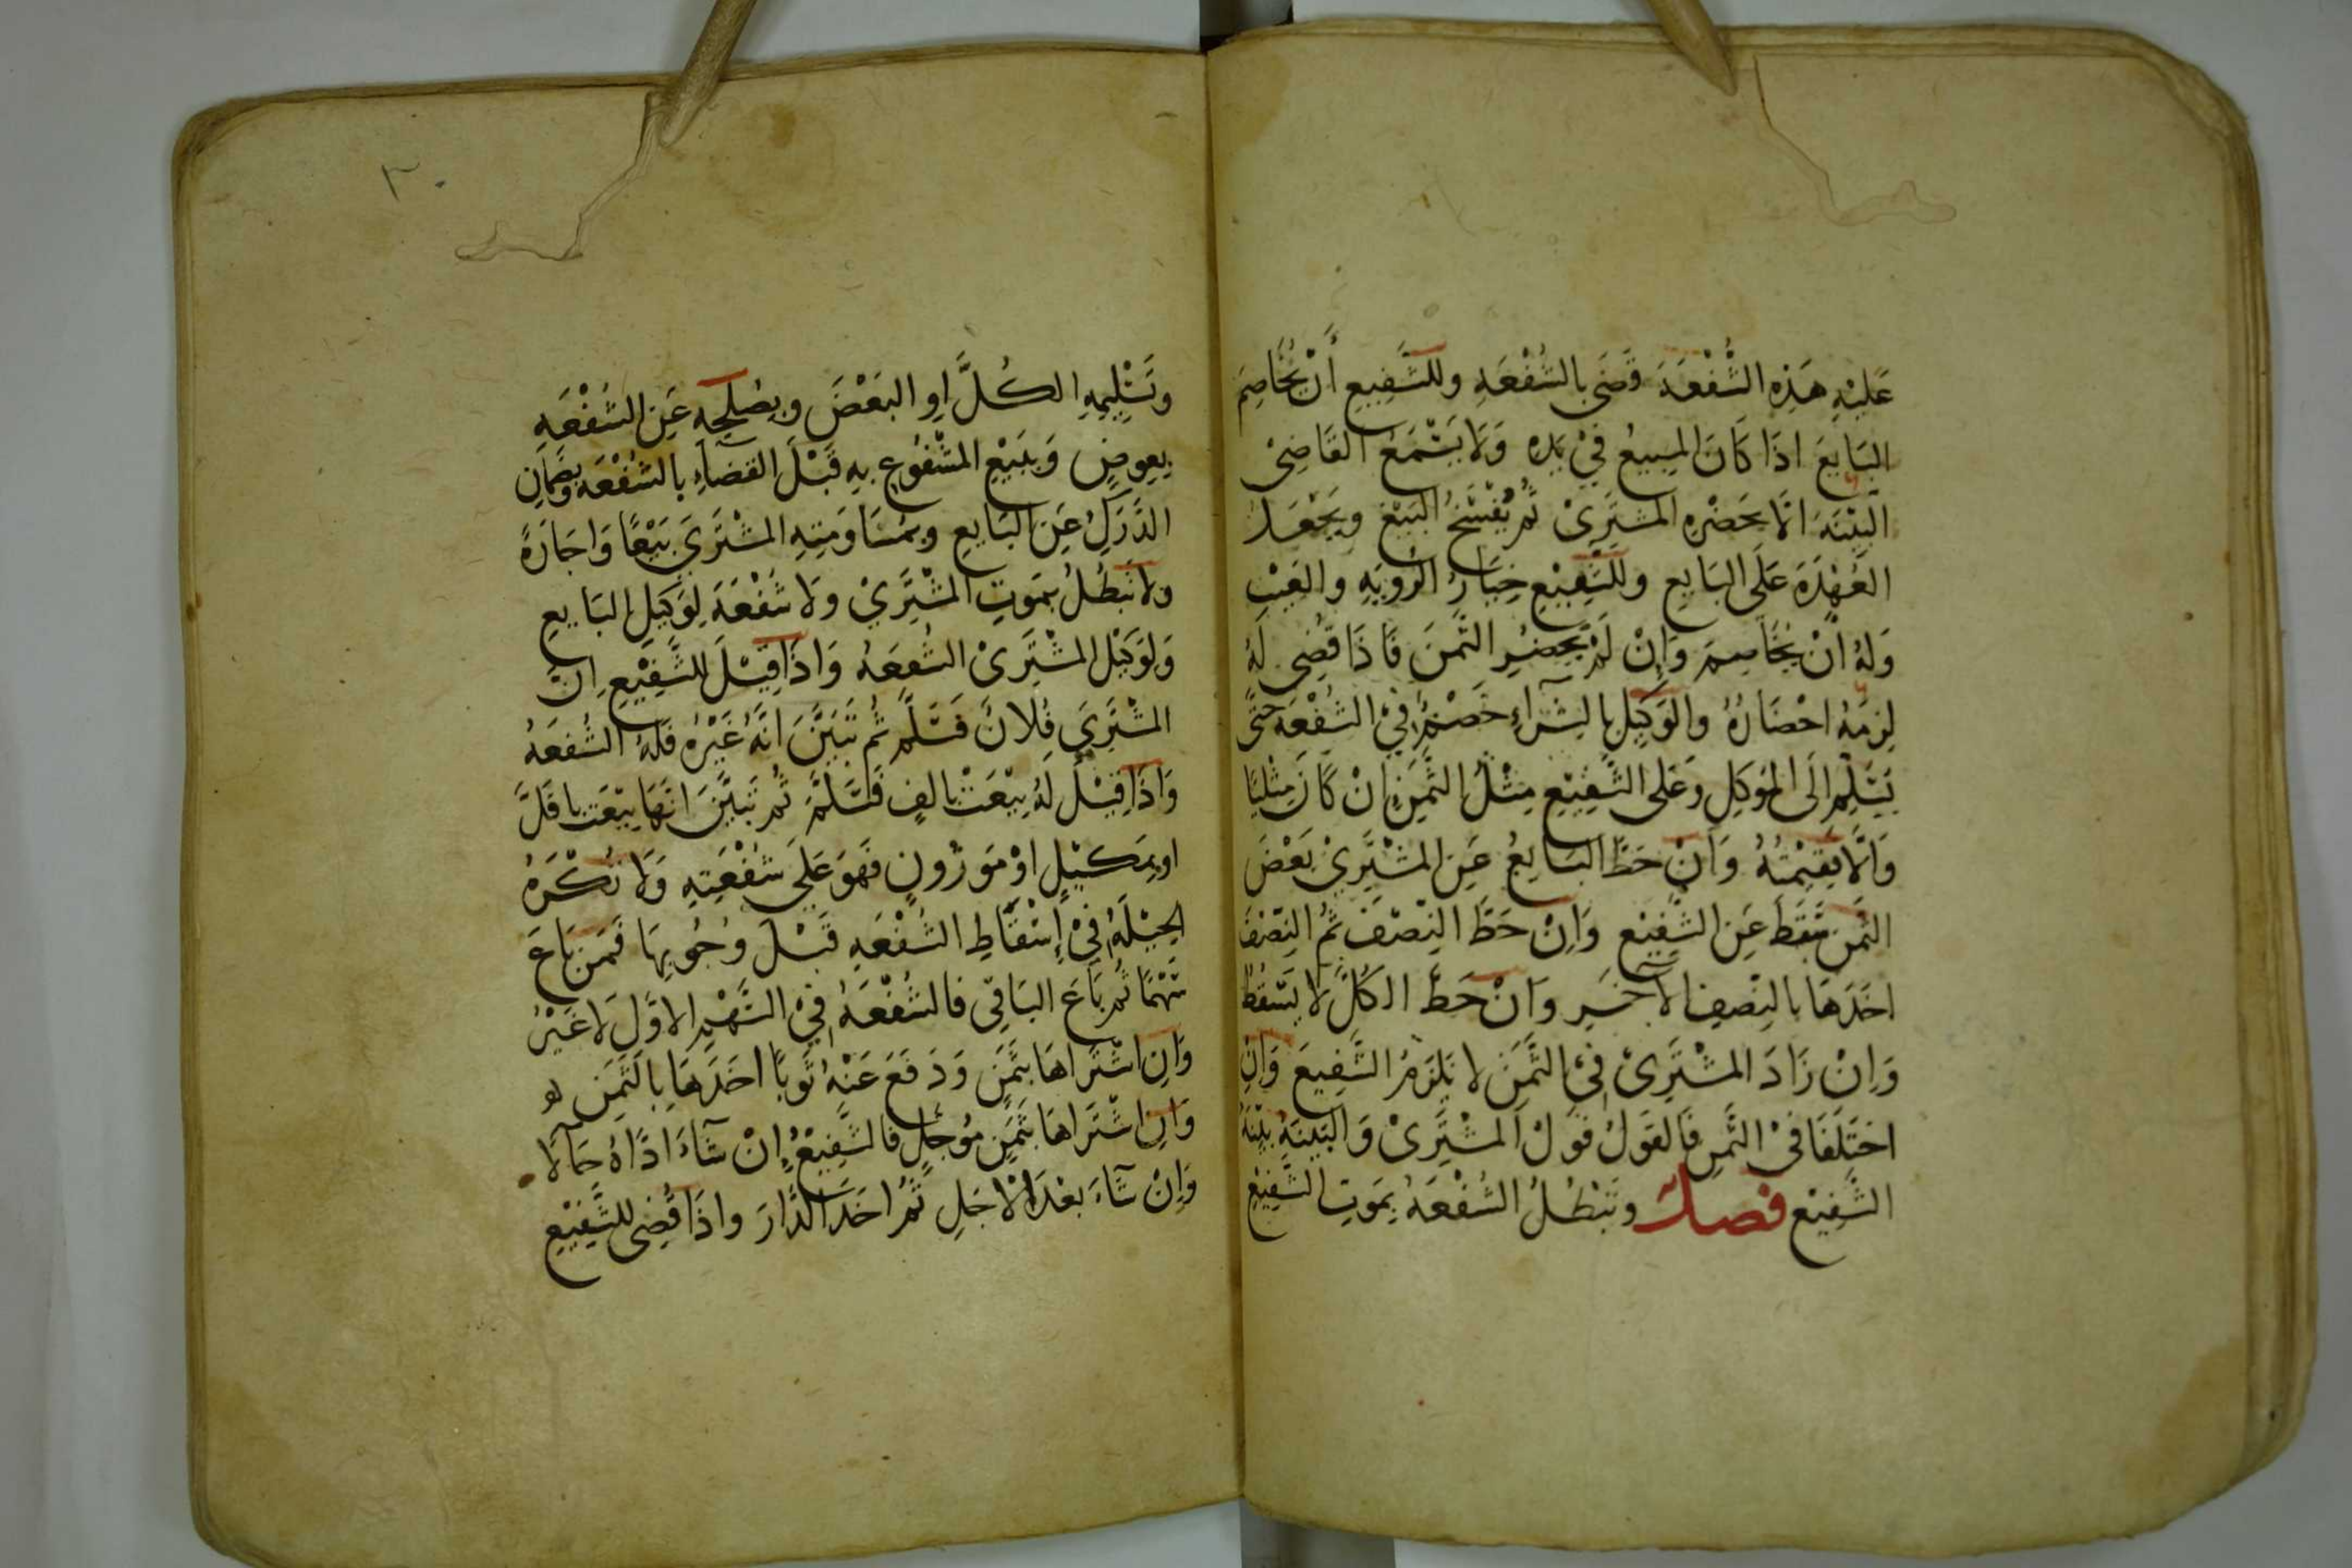 عَلَيْهِ هَذِهِ الشُّفْعَةَ قَضَى بالشُفْعَةِ وللشَّفِيعِ أَنْ يُخَاصِمَ
البَايعَ اذَا كَانَ المبيعُ فِيْ يَدِهِ وَلَا يَسْمَعُ القَاضِيْ
البَيِّنَةَ الَّا بحَضْرةِ المشتَرِيْ ثُمَّ يُفْسَخُ البَيْعَ ويَجْعَلُ
العُهْدَةَ عَلَى البَايعِ وللشَّفِيْعِ خِيَارُ الرُويَةِ والعَيْبِ
وَلَهُ انْ يُخَاصِمَ وَاِنْ لَمْ يُحضِرِ الثَّمنَ فَاذَا قُضِي لَهُ
لزِمَهُ احْضَارُهُ والوَكِيلُ بالشِرَآءِ خَصْمٌ فِيْ الشُفْعَةِ حَتَّى
يُسَلِّمَ الَى المُوَكِلِ وَعَلى الشَّفِيْعِ مِثْلُ الثَّمَنِ اِنْ كَانَ مِثْليًا
وَالَّا فقِيْمتُهُ وَاِنْ حَطَّ البَايعُ عَنِ المشْتَرِيْ بَعْضَ
الثَّمنِ سَقَطَ عَنِ الشَّفِيْعِ وَاِنْ حَطَّ النِصْفَ ثُمَّ النِصْفَ
اخَذَهَا بالنِصْفِ الأَخَيرِ وَانْ حَطَّ الكُلَّ لا يَسْقُطُ
وَاِنْ زَادَ المشْتَرِيْ فِيْ الثَّمَنِ لا يَلزَمُ الشَّفِيعَ وَاِنِ
اختَلَفَا فيْ الثَّمنِ فَالقَولُ قَولُ المشْتَرِيْ وَالبَيِنَةُ بيِّنَةُ
الشَّفِيْعِ فصل وتَبْطُلُ الشُفْعَةُ بِمَوتِ الشَّفِيْعِ
٣٠
وتَسْلِيمِهِ الكُلَّ اوِ البَعْضَ وبِصُلحِهِ عَنِ الشُفْعَةِ
بِعِوضٍ وَبِبَيْعِ المشْفُوعِ بِهِ قَبْلَ القضَآءِ بالشُفْعَةِ وبضَمَانِ
الدَّرَكِ عَنِ البَايعِ وبمُسَاوَمتِهِ المشْتَرِيَ بَيْعًا وَاجَارَةً
ولا تَبطُلُ بمَوتِ المشْتَرِيْ وَلا شُفْعَةَ لِوَكيلِ البَايعِ
وَلِوَكيْلِ المشْتَرِيْ الشُفعَةُ وَاذَا قِيْلَ للشَّفِيْعِ اِنّ
المشْتَرِيَ فُلَانٌ فَسَلَّمَ ثُم تَبَيَّنَ انَّهُ غَيْرُهُ فَلَهُ الشُفعَةُ
وَاذَا قِيْلَ لَهُ بِيْعَتْ بالفٍ فَسَلَّمَ ثُم تَبَيَّنَ انّهَا بيْعَت باقَلَّ
اوبِمَكيْلٍ اوْ مَوْزُونٍ فَهوَ عَلَى شُفْعَتِهِ وَلَا تُكْرَهُ
الحِيْلَةُ فِيْ اِسْقَاطِ الشُفْعَةِ قَبْلَ وُجُوبِهَا فَمَن بَاعَ
سَهْمًا ثُم بَاعَ البَاقِي فالشُفْعَةُ فِيْ السَّهْمِ الاوَّلِ لا غَيْرُ
وَاِنِ اشْتَرَاهَا بثَمَنٍ وَدَفَعَ عَنْهُ ثَوبًا اخَذَهَا بالثَّمَنِ
وَاِنِ اشْتَرَاهَا بثَمَنٍ مُوجَّلٍ فالشَّفِيْعُ اِنْ شَآءَ ادَّاهُ حَالًّا
وَاِنْ شَآءَ بعْدَ الاجَلِ ثُمَّ اخَذَ الدَّارَ واذَا قُضِى للشَّفِيْعِ